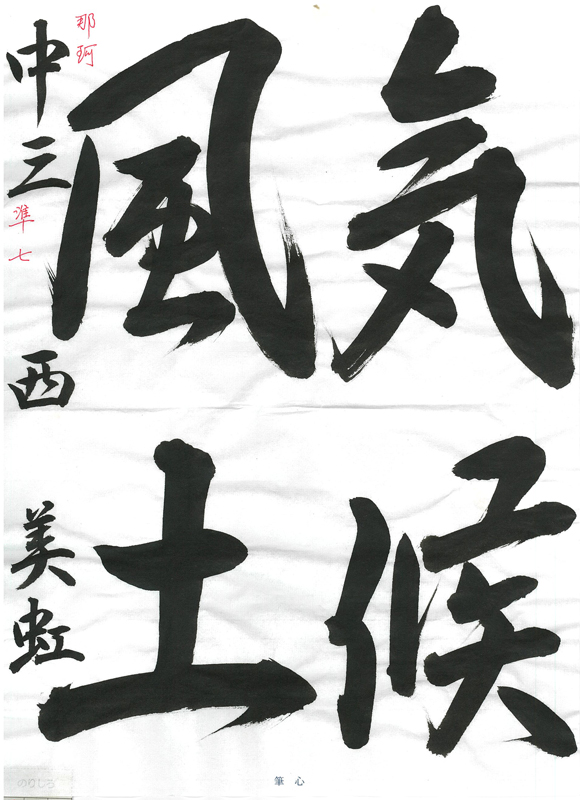 気候
風土
中三 西 美虹
那珂
準七
筆心
のりしろ